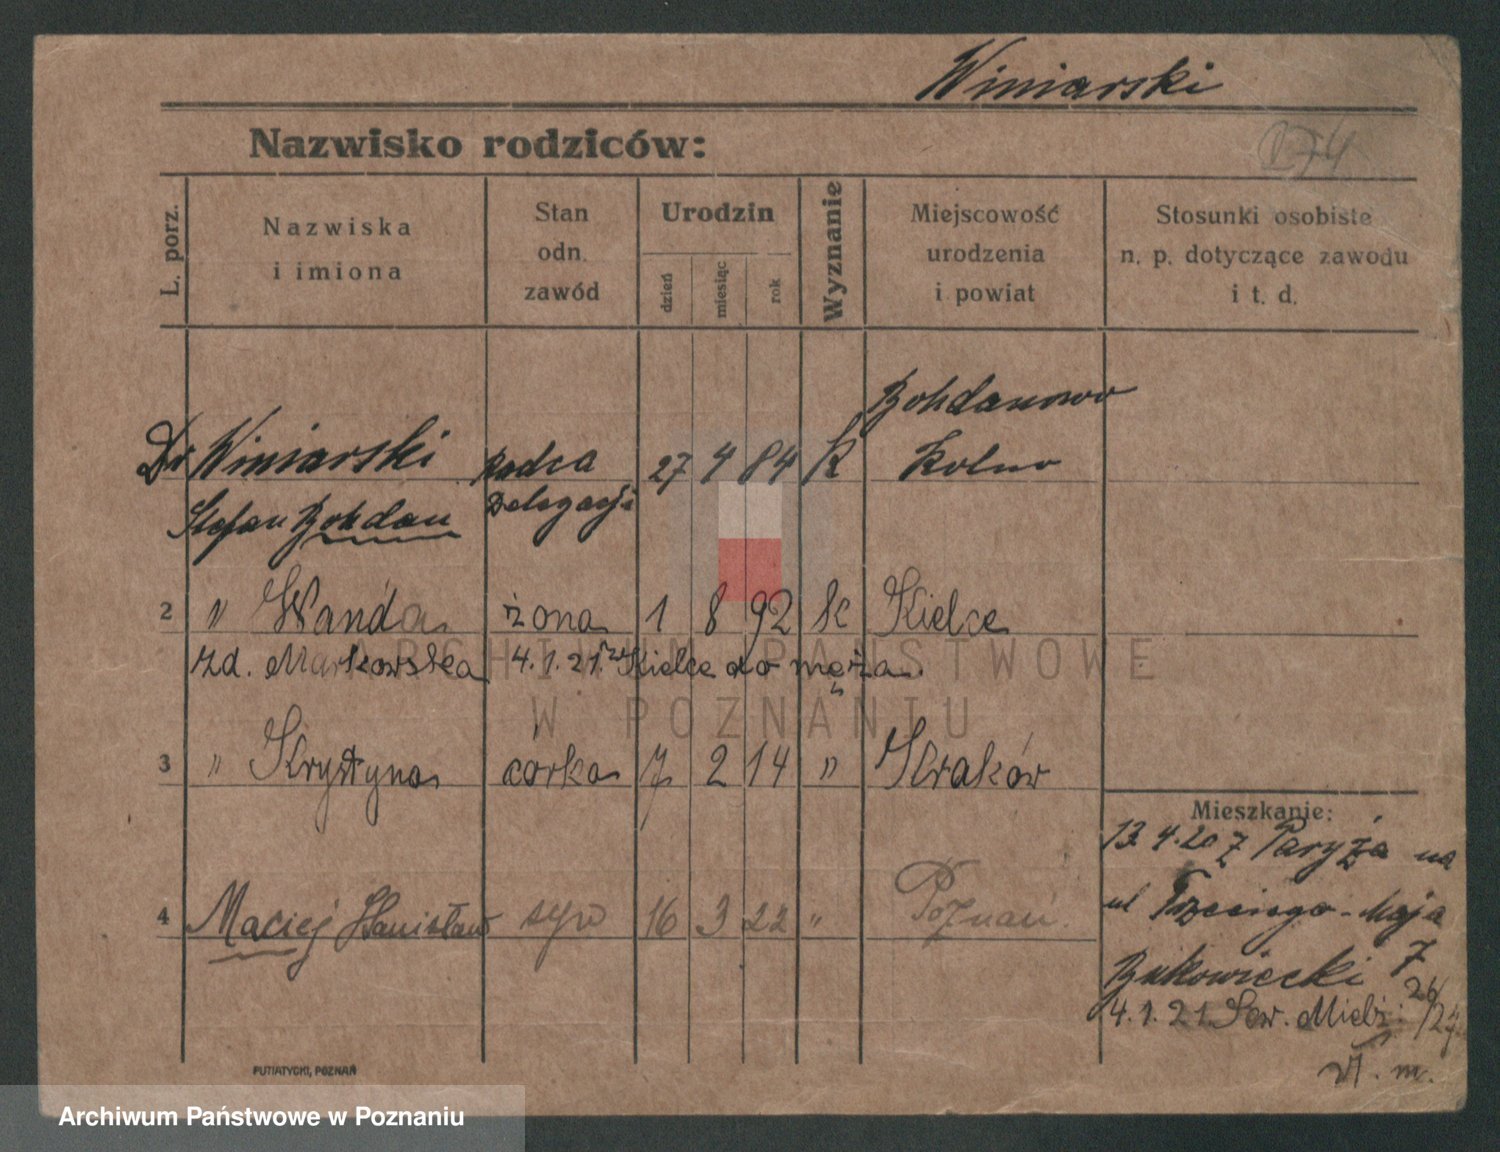 Winiarski
Nazwisko rodziców:
174
L. porz.
Nazwiska
i imiona
Stan
odn.
zawód
Urodzin
dzień
miesiąc
rok
Wyznanie
Miejscowość
urodzenia
i powiat
Stosunki osobiste
n. p. dotyczące zawodu
i t. d.
Bohdanowo
Dr Winiarski Radca 27 4 84 K Kolno
Stefan Bohdan Delegacji
2 " Wanda żona 1 8 92 k Kielce
zd. Markowska 4.1.21. z Kielce do męża.
3 " Krystyna córka 7 2 14 " Kraków
Mieszkanie:
13.4.20 z Paryża na
4 Maciej Stanisław syn 16 3 22 " Poznań.
ul Trzeciego-Maja
Bukowiecki 7
4.1.21. Sew. Mielż. 26/27
W. m.
PUTIATYCKI, POZNAŃ
ARCHIWUM PAŃSTWOWE
W POZNANIU
Archiwum Państwowe w Poznaniu